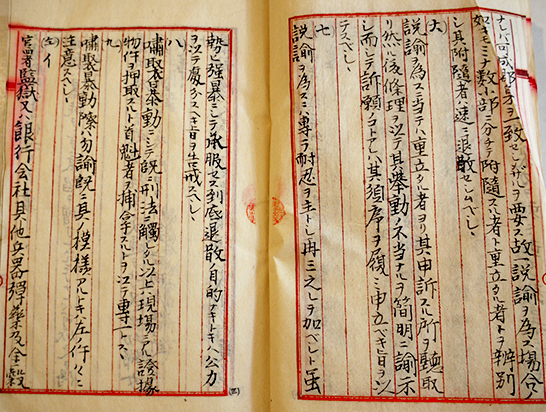 可成 ヲ一致セシメザルヲ要ス故ニ説諭ヲ為ス場合ノ
如キモ 数小部ニ分チ附随スル者ト重立タル者トヲ辨別
シ其附随者ハ速ニ退散セシムベシ
六
説諭ヲ為スニ当テハ重立タル者ヨリ其申訴スル所ヲ聴取
リ然ル後條理ヲ以テ其挙動ノ不当ナルヲ簡明ニ諭示
シ而シテ訴願ノ ハ其順序ヲ履ミ申立ベキ旨ヲ以
テスベシ
七
説諭ヲ為スニ専ラ耐忍ヲ主トシ再三之レヲ加ベシト虽
勢ヒ強暴ニシテ承服セス到底退散ノ目的ナキトキハ公力
ヲ以テ處分スベキ旨ヲ告戒スベシ
八
嘯聚暴動ニシテ既ニ刑法ニ觸レタル以上ハ現場ニテ證據
物件ヲ押取スルト首魁者ヲ捕拿スルトヲ以テ専一トス
九
嘯聚暴動ノ際ハ勿論既ニ其ノ模様アルトキハ左ノ件々ニ
注意スベシ
イ
官署監獄又ハ銀行会社其他兵器弾薬及金穀